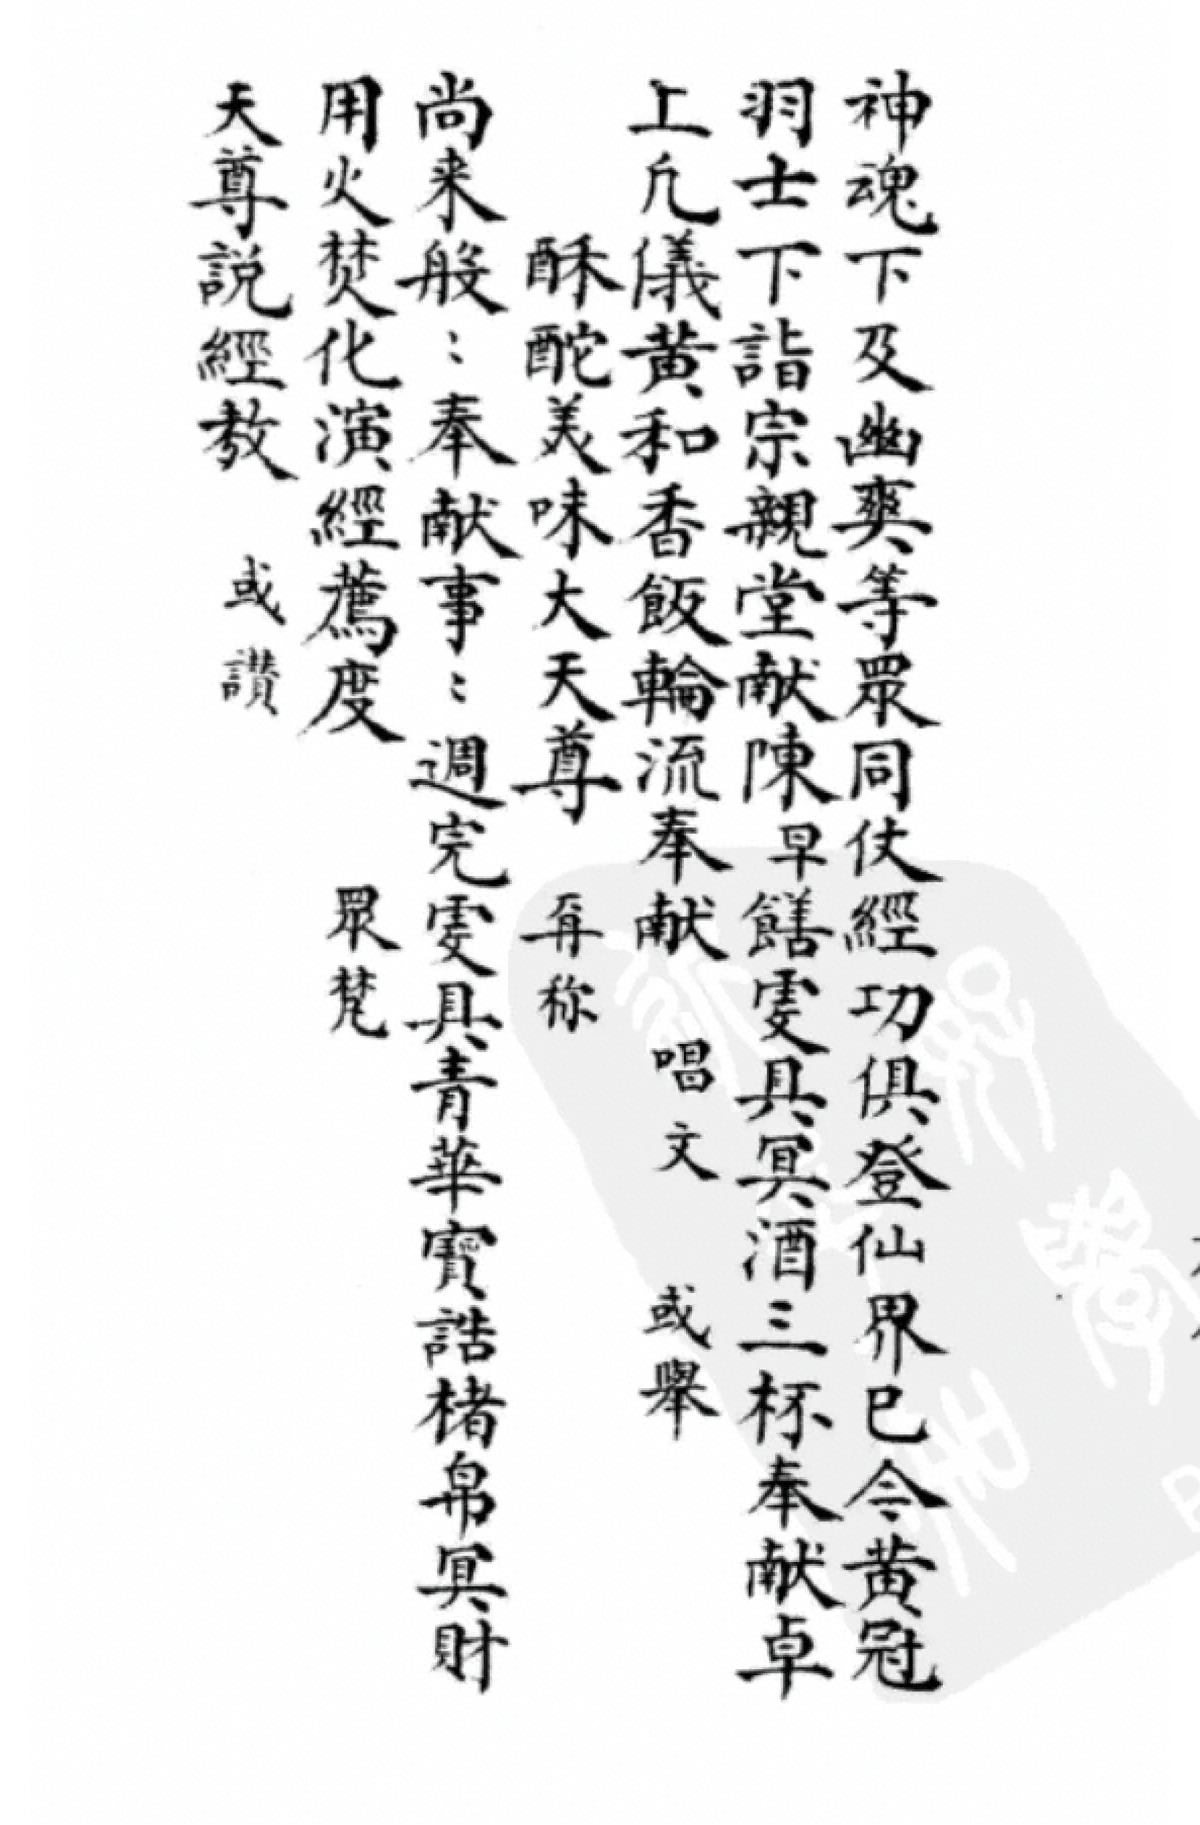 神魂下及幽爽等眾同仗經功俱登仙界已令黃冠
羽士下詣宗親堂献陳早饍雯具冥酒三杯奉献卓
上凢儀黃和香飯輪流奉献 唱文 或舉
酥酡美味大天尊 再称
尚来般：奉献事：週完雯具青華寶誥楮帛冥財
用火焚化演經薦度 眾梵
天尊説經教 或讃